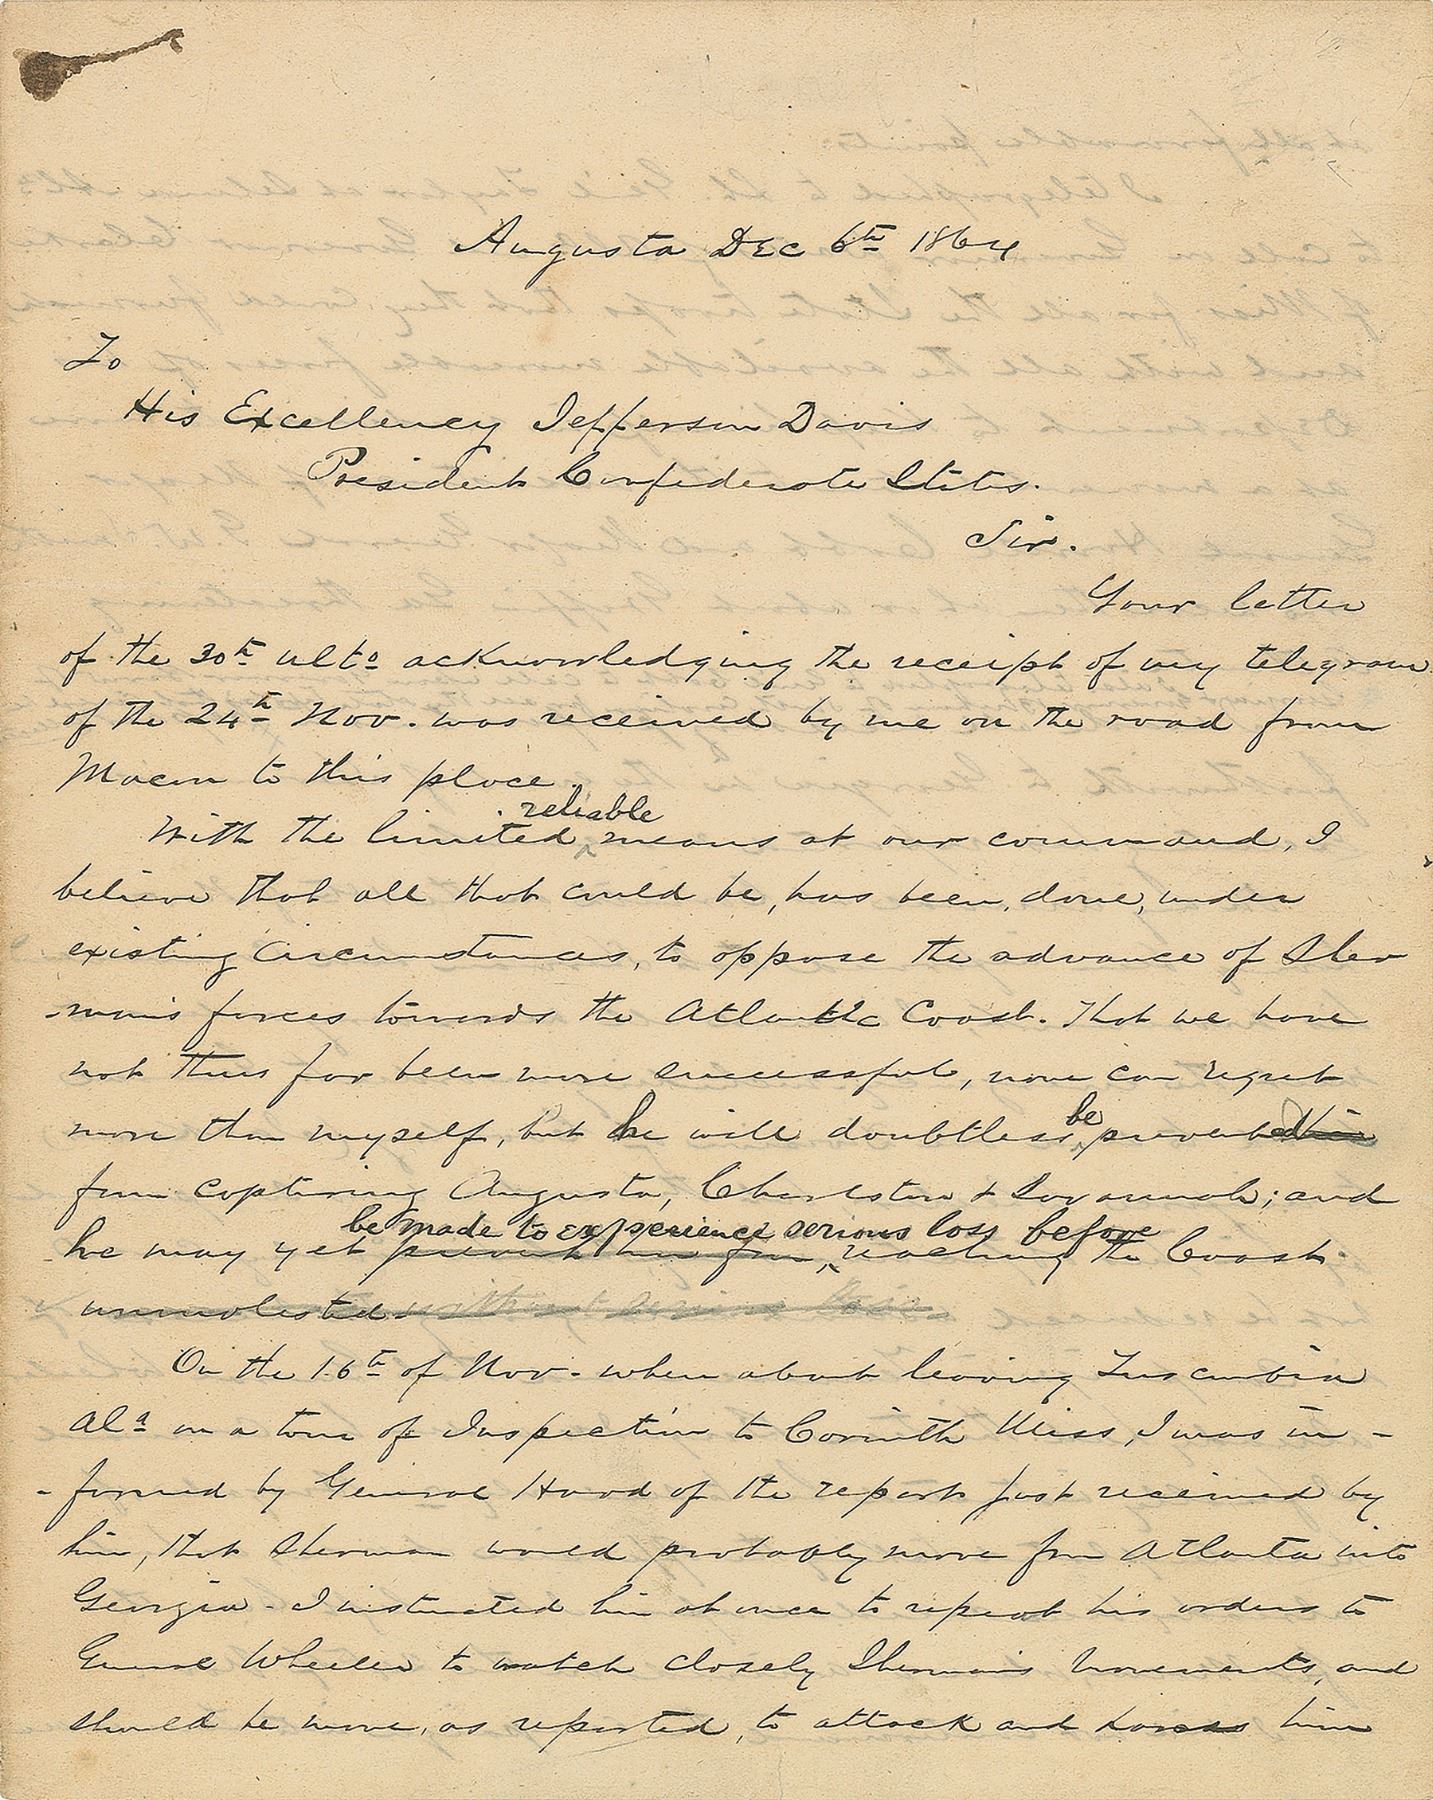 Augusta Dec 6th 1864
To
His Excellency Jefferson Davis
President Confederate States.
Sir.
Your letter
of the 30th ulto acknowledging the receipt of my telegram
of the 24th Nov. was received by me on the road from
Macon to this place.
With the limited reliable means at our command, I
believe that all that could be, has been, done, under
existing circumstances, to oppose the advance of Sher
-man's forces towards the Atlantic Coast. That we have
not thus far been more successful, none can regret
more than myself, but he will doubtless be prevented him
from capturing Augusta, Charleston & Savannah; and
be made to experience serious loss before
he may yet prevent him from reaching the Coast.
unmolested without serious loss
On the 16th of Nov. when about leaving Tuscumbia
Ala on a tour of Inspection to Corinth Miss, I was in-
-formed by General Hood of the report just received by
him, that Sherman would probably move from Atlanta into
Georgia - I instructed him at once to repeat his orders to
General Wheeler to watch closely Sherman's movements, and
should he move, as reported, to attack and harass him